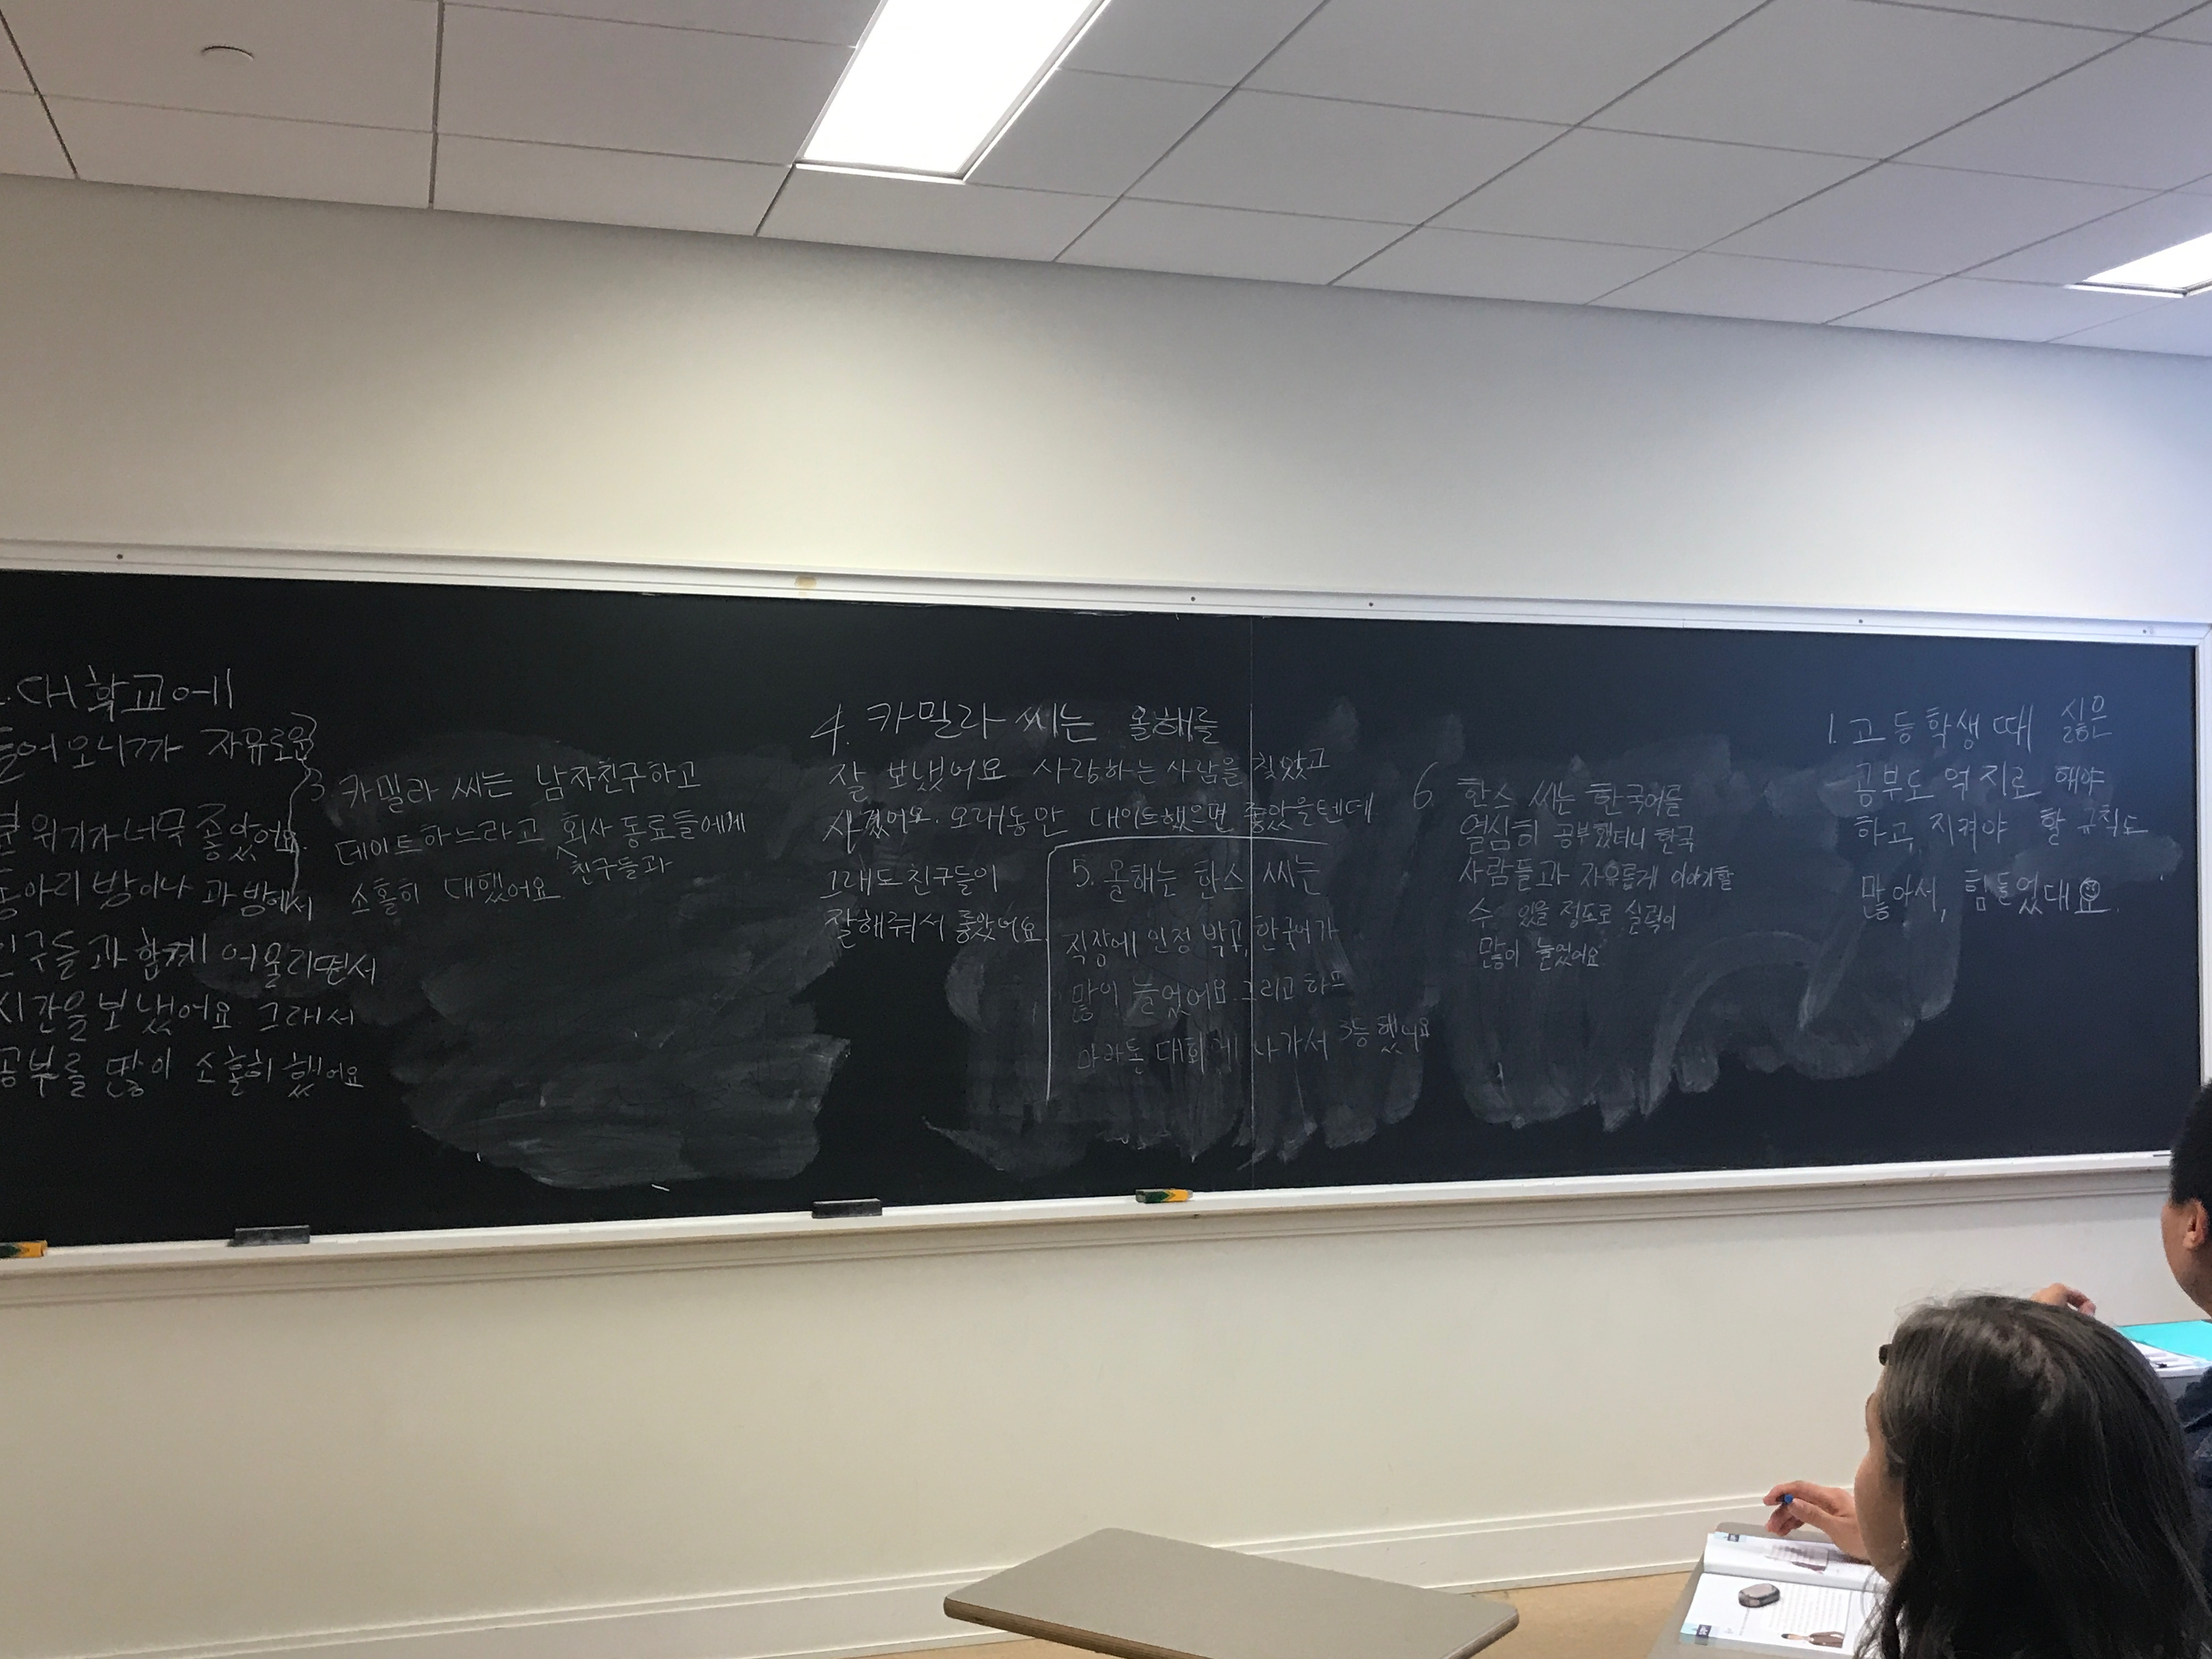 대학교에
들어오니까 자유로운
분위기가 너무 좋았어요.
동아리 방이나 과방에서
친구들과 함께 어울리면서
시간을 보냈어요. 그래서
공부를 많이 소홀히 했어요
3. 카밀라 씨는 남자친구하고
데이트하느라고 회사 동료들에게
친구들과
소홀히 대했어요.
4. 카밀라 씨는 올해를
잘 보냈어요 사랑하는 사람을 찾았고
사겼어요. 오래동안 데이트했으면 좋았을텐데
그래도 친구들이
잘해줘서 좋았어요.
5. 올해는 한스 씨는
직장에 인정 받고, 한국어가
많이 늘었어요. 그리고 하프
마라톤 대회에 나가서 3등 했어요
6. 한스 씨는 한국어를
열심히 공부했더니 한국
사람들과 자유롭게 이야기할
수 있을 정도로 실력이
많이 늘었어요
1. 고등학생 때 싫은
공부도 억지로 해야
하고, 지켜야 할 규칙도
많아서, 힘들었대요.